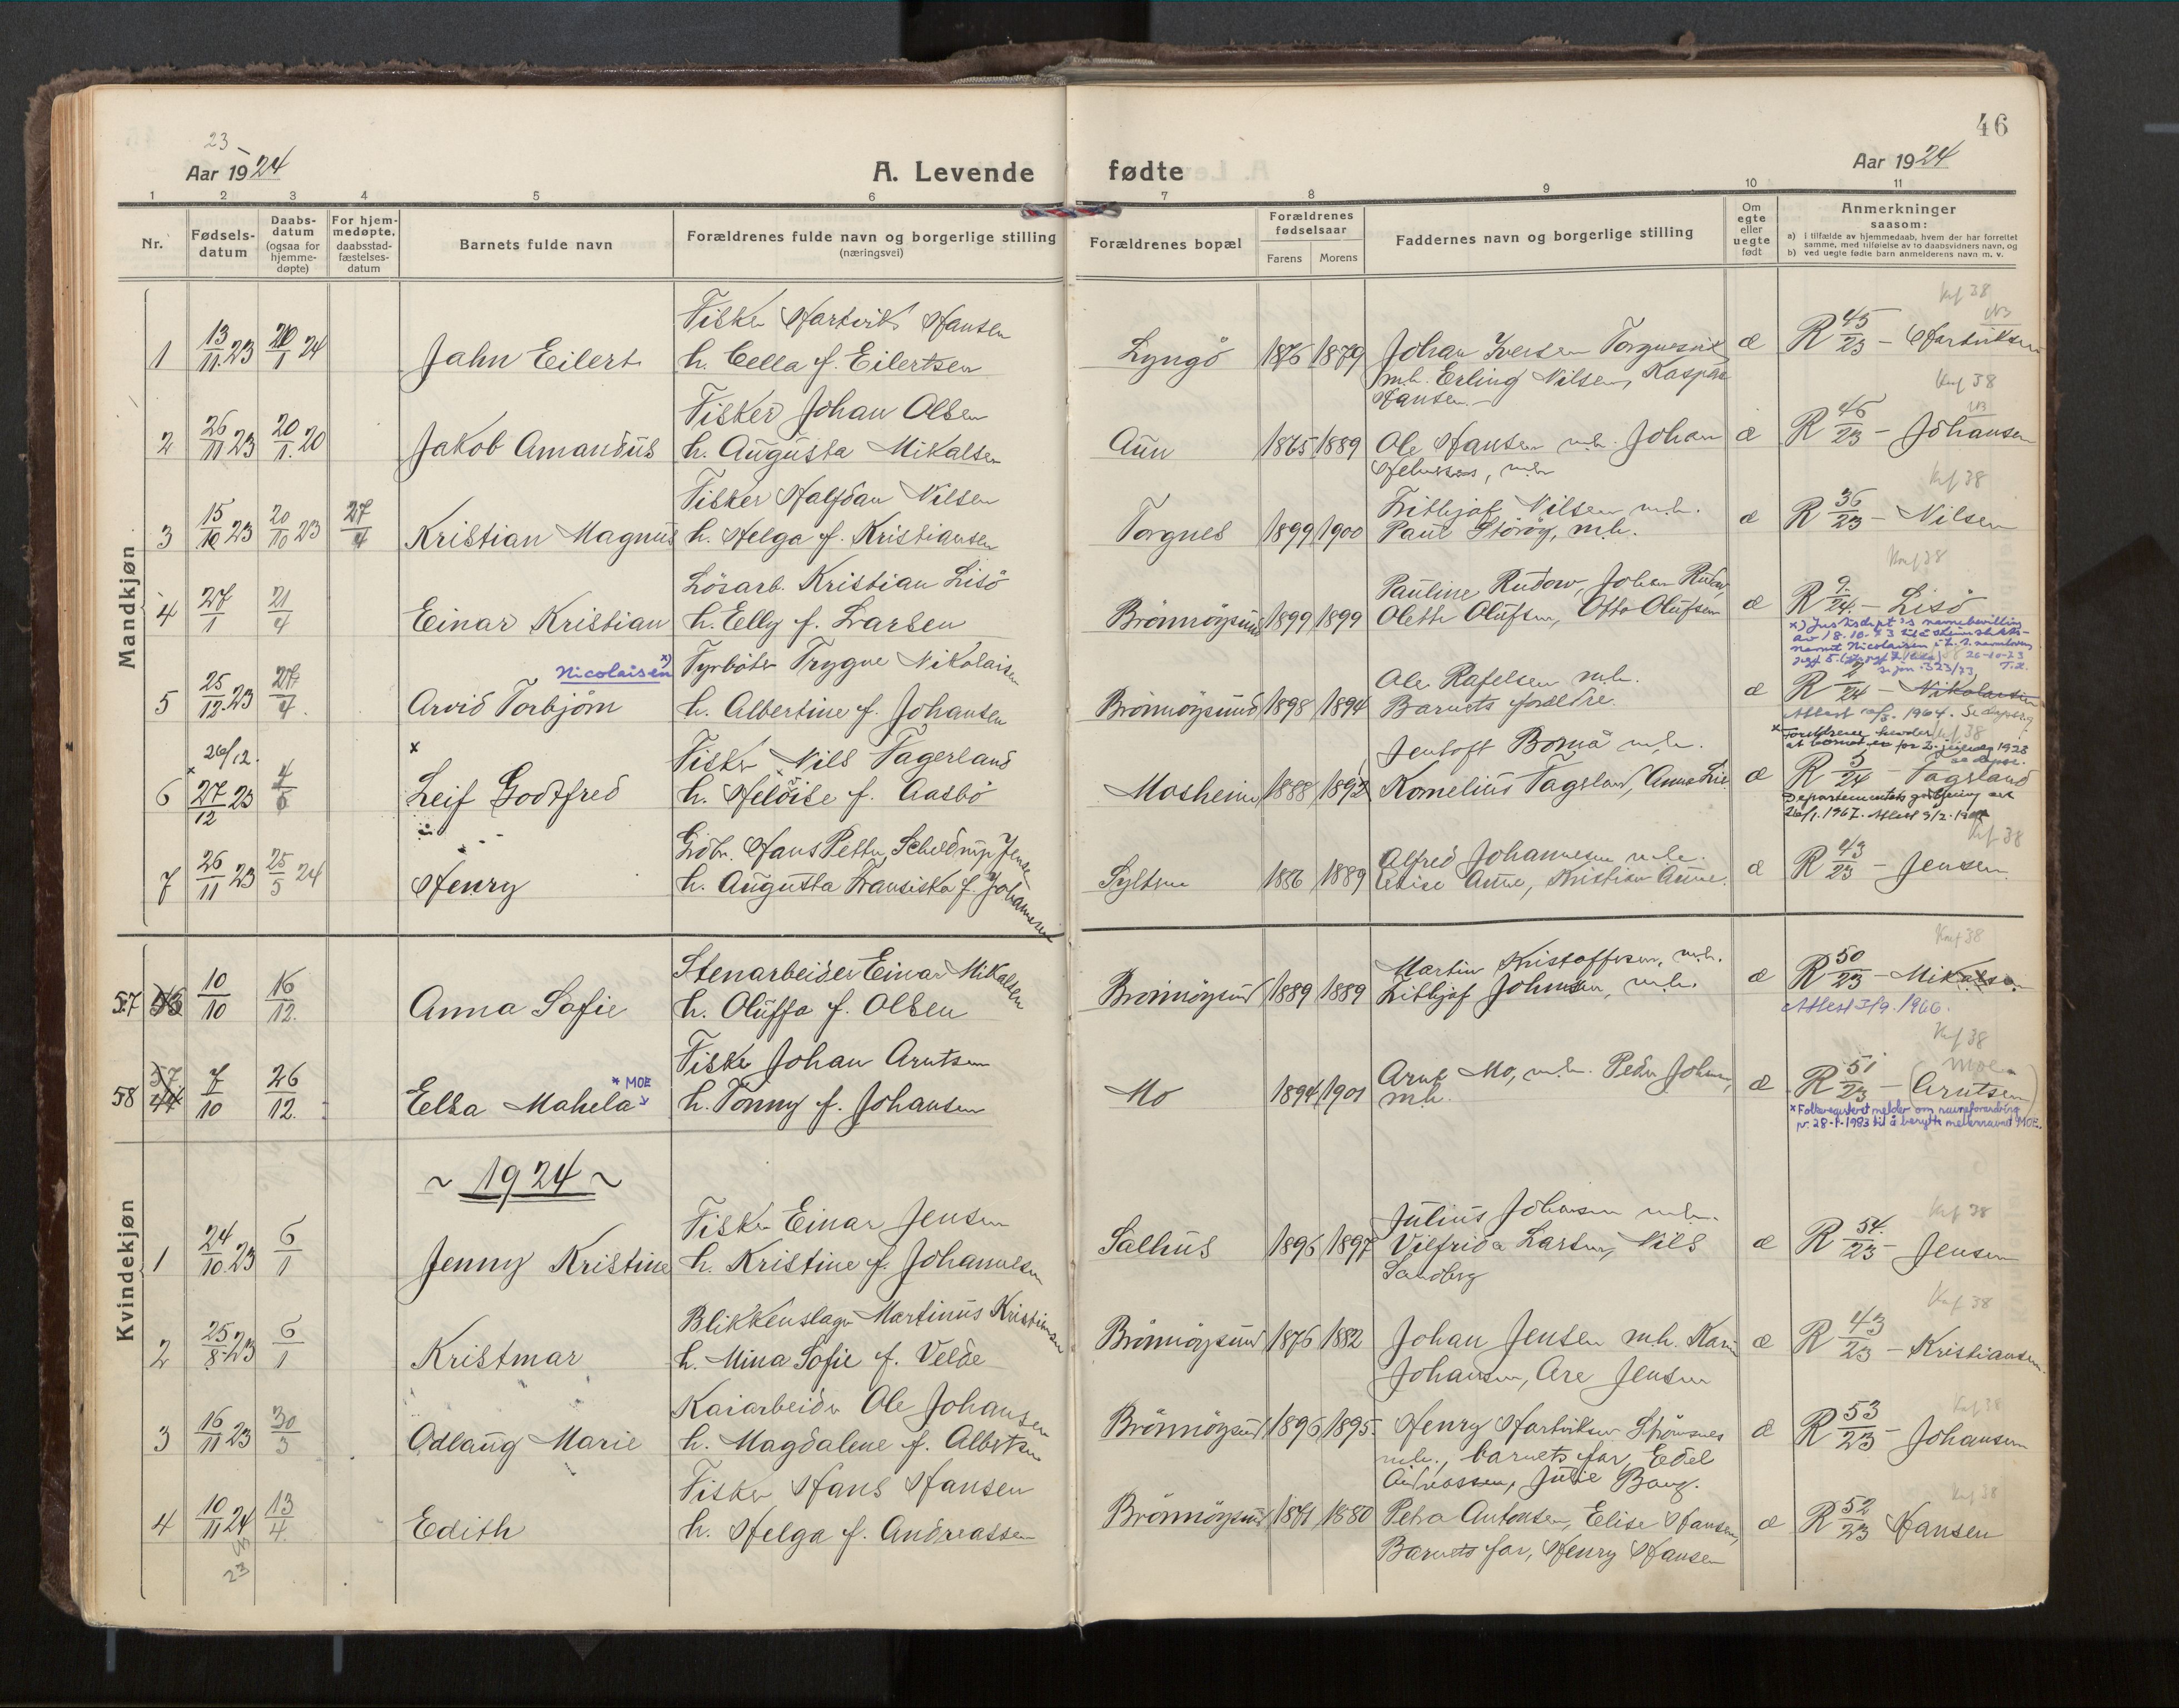 46
23
Aar 1924
A. Levende fødte
Aar 1924
1 2 3 4 5 6 7 8 9 10 11
Nr.
Fødsels-
datum
Daabs-
datum
(ogsaa for
hjemme-
døpte)
For hjem-
medøpte,
daabsstad-
fæstelses-
datum
Barnets fulde navn
Forældrenes fulde navn og borgerlige stilling
(næringsvei)
Forældrenes bopæl
Forældrenes
fødselsaar
Farens Morens
Faddernes navn og borgerlige stilling
Om
egte
eller
uegte
født
Anmerkninger
saasom:
a) i tilfælde av hjemmedaab, hvem der har forrettet
samme, med tilføielse av to daabsvidners navn, og
b) ved uegte fødte barn anmelderens navn m. v.
Mandkjøn
1 13/11 23 20/1 24 Jahn Eilert
Fisker Hartvik Hansen
h. Cella f. Eilertsen
Lyngö 1876 1879
Johan Iversen Torgnesvik
m.h. Erling Nilsen, Kaspar
Hansen.
æ R 45/23 - Hartviksen
Knf 38
2 26/11 23 20/1 20 Jakob Amandus
Fisker Johan Olsen
h. Augusta Mikalsen
Aun 1865 1889
Ole Hansen m.h. Johan
æ R 46/23 - Johansen
Knf 38
3 15/10 23 20/10 23 27/4 Kristian Magnus
Fisker Halfdan Nilsen
h. Helga f. Kristiansen
Torgnes 1899 1900
Fithjof Nilsen m.h.
Paul Storöy, m.h.
æ R 36/23 - Nilsen
Knf 38
4 27/1 21/4 Einar Kristian
Lösarb. Kristian Lisö
h. Elly f. Larsen
Brönnöysund 1899 1899
Pauline Rudow, Johan Rudow,
Olette Olufsen, Otto Olufsen
æ R 9/24 - Lisö
x) Justisdept's navnebevilling
5 25/12 23 27/4 Arvid Torbjörn Nicolaisen x)
Fyrböter Trygve Nikolaisen
h. Albertine f. Johansen
Brönnöysund 1898 1894
Ole Rafelsen m.h.
Barnets foreldre.
æ R 2/24 - Nikolaisen
26/12.
6 27/12 23 4/5 x Leif Godtfred
Fisker Nils Fagerland
h. Helöise f. Aasbö
Mosheim 1888 1892
Jentoft Bornå m.h.
Kornelius Fagerland, Anna Lie
æ R 3/24 - Fagerland
Departementets godkjening av
26/1. 1967.
7 26/11 23 25/5 24 Henry
Grdbr. Hans Petter Scheldrup Jensen
h. Augusta Fransiska f. Johannesen
Sylten 1886 1889
Alfred Johannesen m.h.
Elise Aune, Kristian Aune.
æ R 43/23 - Jensen
Knf 38
Kvindekjøn
57 10/10 16/12. Anna Sofie
Stenarbeider Einar Mikalsen
h. Oluffa f. Olsen
Brönnöysund 1889 1889
Martin Kristoffersen, m.h.
Fithjof Johansen, m.h.
æ R 50/23 - Mikalsen
Knf 38
Attest 7/9. 1966.
58 7/10 26/12. Elsa Mahela * MOE
Fisker Johan Arntsen
h. Tonny f. Johansen
Mo 1894 1901
Arnt Mo, m.h. Peder Johnsen,
m.h.
æ R 51/23 - (Arntsen) Moe
Knf 38
* Folkeregisteret melder om navneforandring
pr. 28-1-1983 til å benytte mellomnavnet MOE.
~ 1924 ~
1 24/10 23 6/1 Jenny Kristine
Fisker Einar Jensen
h. Kristine f. Johannesen
Salhus 1896 1897
Julius Johansen m.h.
Vilfrida Larsen, Nils
Sandberg
æ R 54/23 - Jensen
Knf 38
2 25/8 23 6/1 Kristmar
Blikkenslager Martinus Kristiansen
h. Mina Sofie f. Velde
Brönnöysund 1876 1882
Johan Jensen m.h. Karin
Johansen, Are Jensen
æ R 43/23 - Kristiansen
Knf 38
3 16/11 23 30/3 Odlaug Marie
Kaiarbeider Ole Johansen
h. Magdalene f. Albertsen
Brönnöysund 1896 1895.
Henry Hartviksen Strömsnes
m.h., barnets far, Edel
Andreassen, Julie Bang.
æ R 53/23 - Johansen
Knf 38
4 10/11 24 13/4. Edith
23
Fisker Hans Hansen
h. Helga f. Andreassen
Brönnöysund 1871 1880
Petra Antonsen, Elise Hansen,
Barnets far, Henry Hansen
æ R 52/23 Hansen
Knf 38